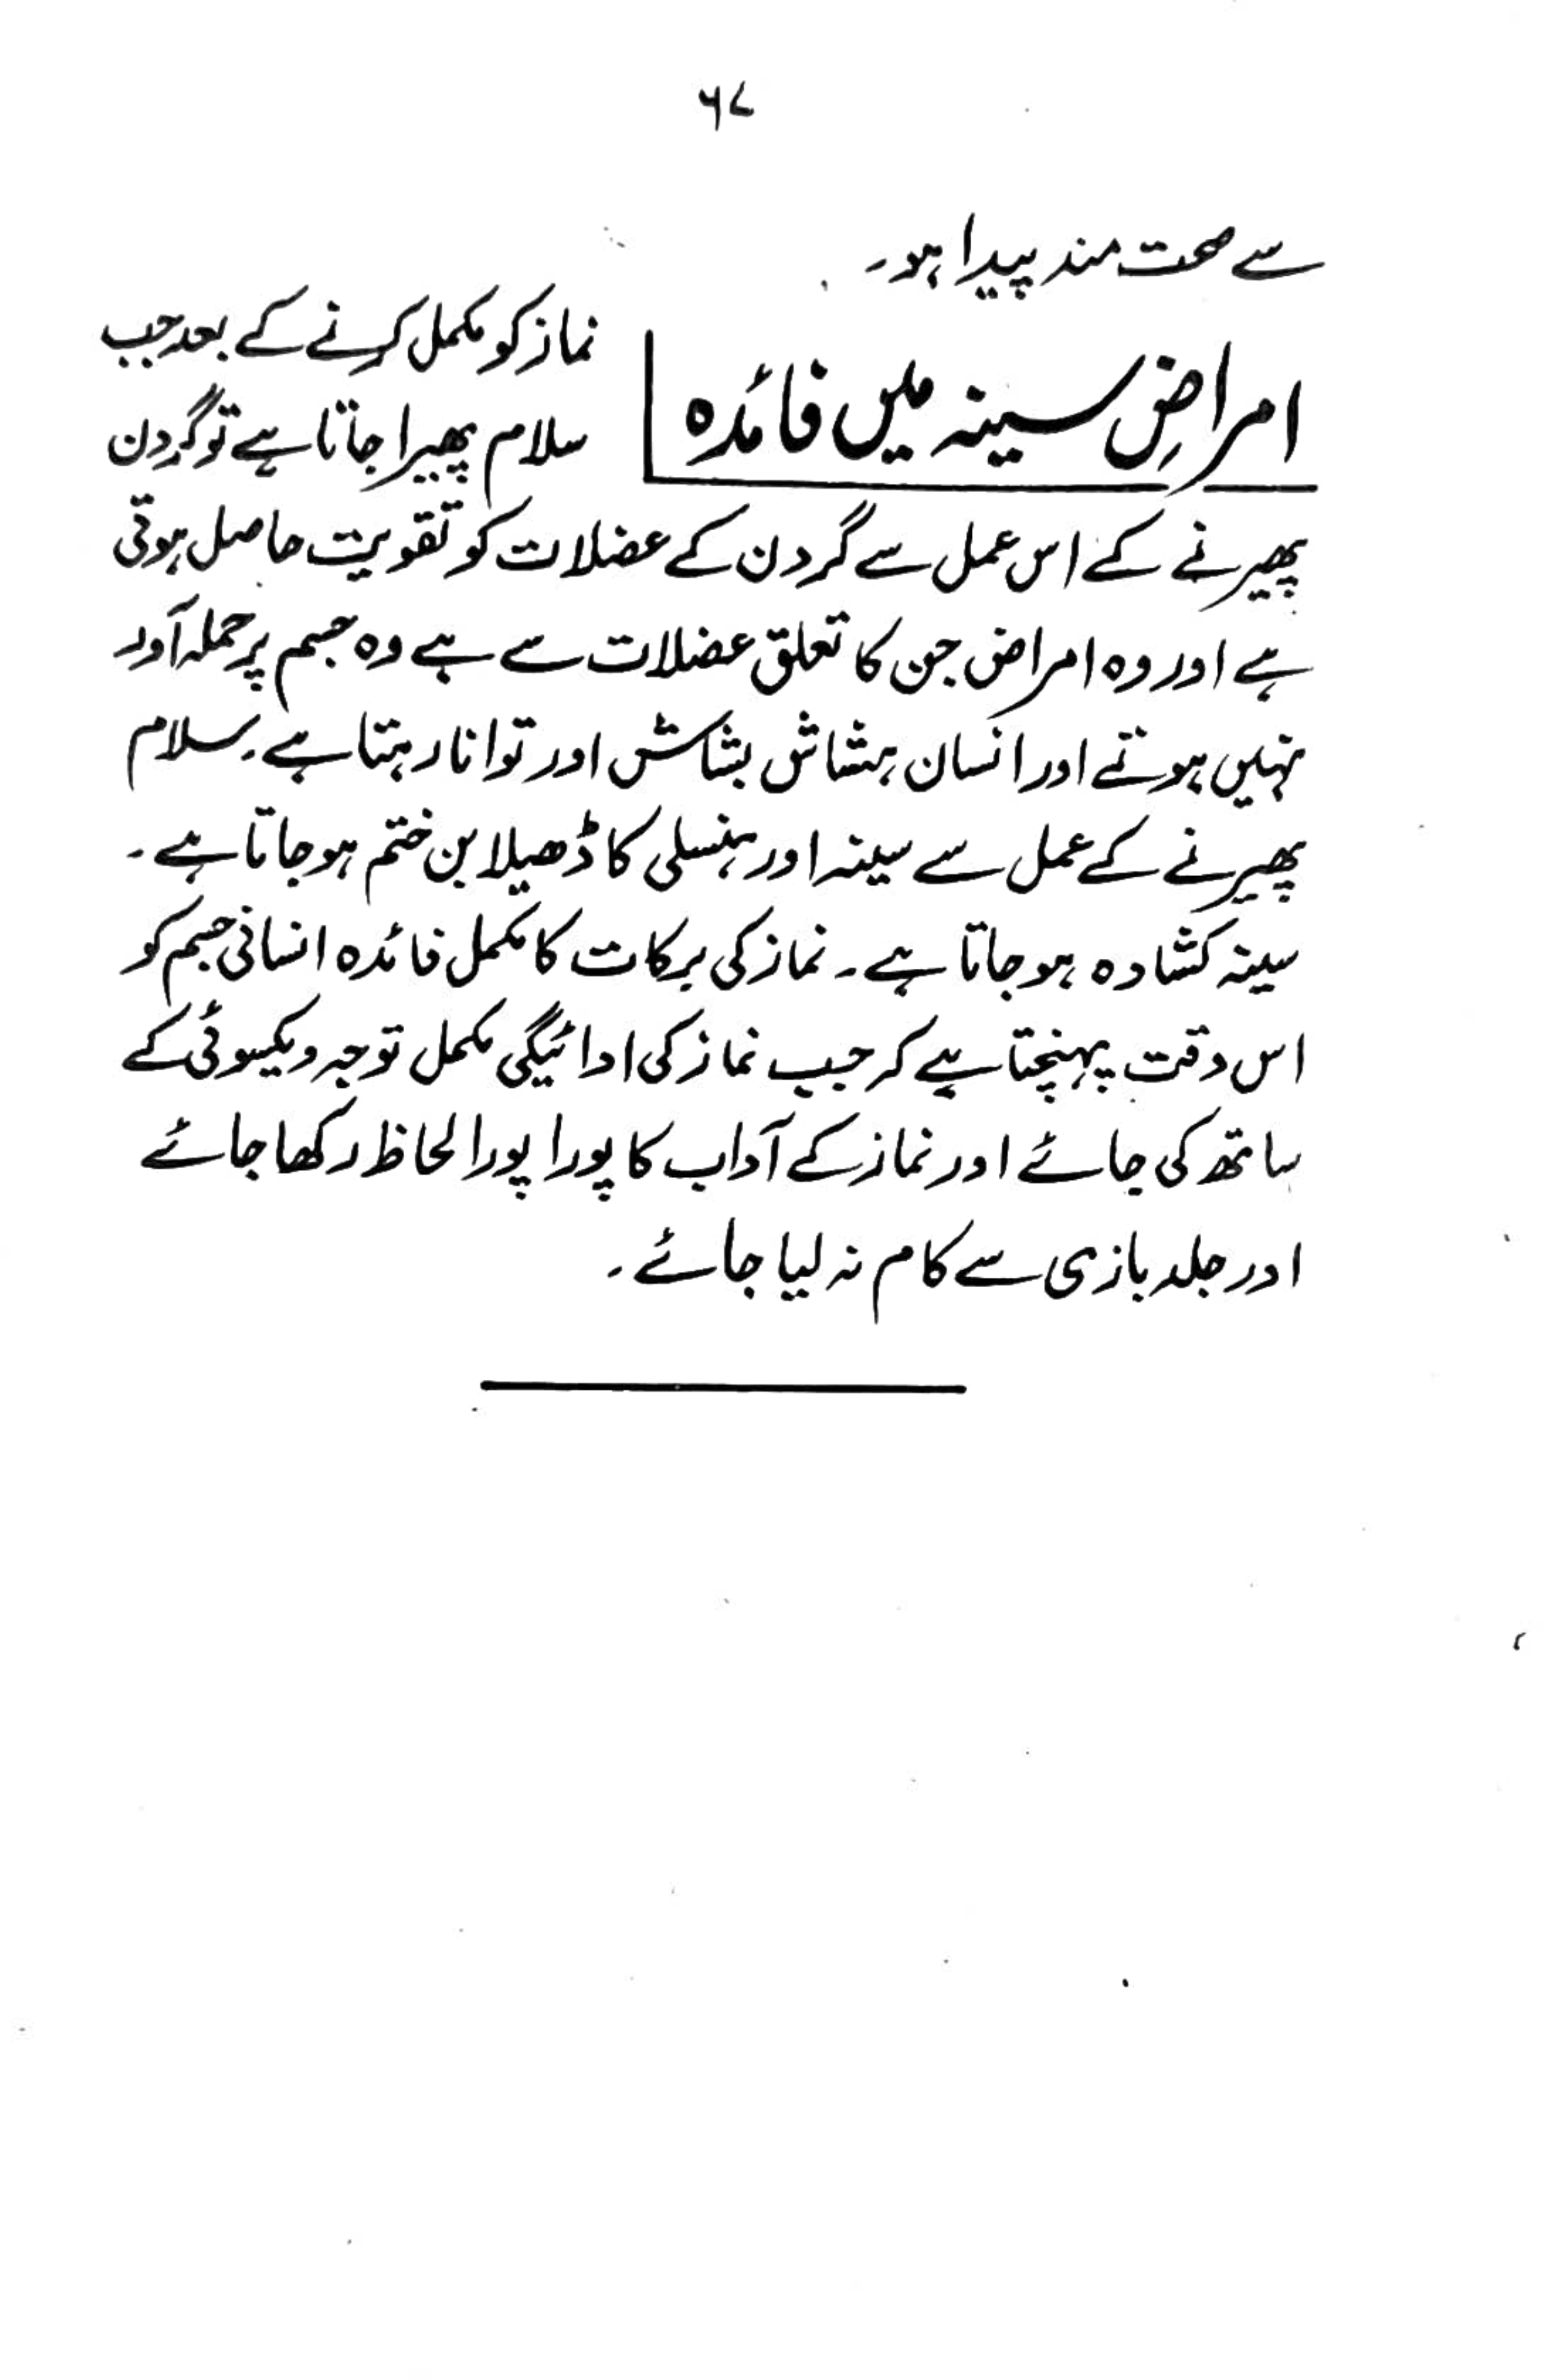 ۶۷
سے صحت مند پیدا ہو۔
امراضِ سینہ میں فائدہ
نماز کو مکمل کرنے کے بعد جب
سلام پھیرا جاتا ہے تو گردن
پھیرنے کے اس عمل سے گردن کے عضلات کو تقویت حاصل ہوتی
ہے اور وہ امراض جن کا تعلق عضلات سے ہے وہ جسم پر حملہ آور
نہیں ہوتے اور انسان ہشاش بشاش اور توانا رہتا ہے۔ سلام
پھیرنے کے عمل سے سینہ اور ہنسلی کا ڈھیلا پن ختم ہو جاتا ہے۔
سینہ کشادہ ہو جاتا ہے۔ نماز کی برکات کا مکمل فائدہ انسانی جسم کو
اس وقت پہنچتا ہے کہ جب نماز کی ادائیگی مکمل توجہ و یکسوئی کے
ساتھ کی جائے اور نماز کے آداب کا پورا پورا لحاظ رکھا جائے
اور جلد بازی سے کام نہ لیا جائے۔